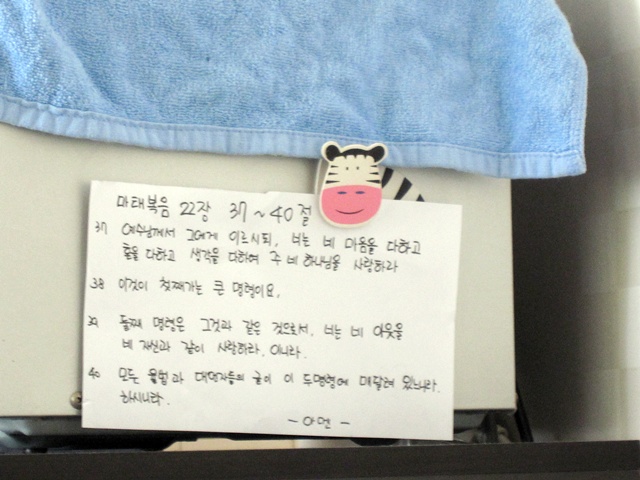 마태복음 22장 37~40절
37 예수님께서 그에게 이르시되, 너는 네 마음을 다하고
혼을 다하고 생각을 다하여 주 네 하나님을 사랑하라
38 이것이 첫째가는 큰 명령이요,
39 둘째 명령은 그것과 같은 것으로서, 너는 네 이웃을
네 자신과 같이 사랑하라, 이니라.
40 모든 율법과 대언자들의 글이 이 두명령에 매달려 있느니라.
하시니라.
- 아멘 -